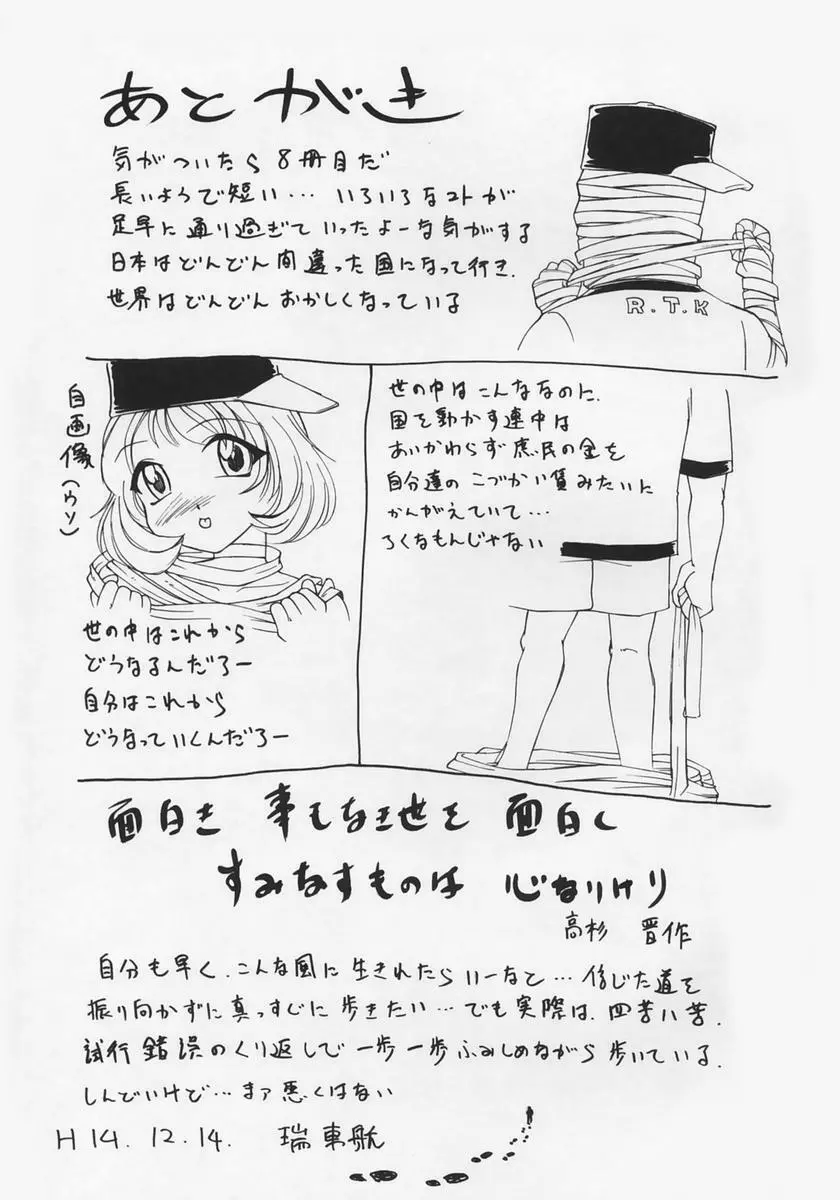 あとがき
気がついたら8冊目だ
長いようで短い…いろいろなコトが
足早に通り過ぎていったよーな気がする
日本はどんどん間違った国になって行き、
世界はどんどんおかしくなっている
R.T.K
自画像(ウソ)
世の中はこれから
どうなるんだろー
自分はこれから
どうなっていくんだろー
世の中はこんななのに、
国を動かす連中は
あいかわらず庶民の金を
自分達のこづかい賃みたいに
かんがえていて…
ろくなもんじゃない
面白き 事もなき世を 面白く
すみなすものは 心なりけり
高杉 晋作
自分も早く、こんな風に生きれたらいーなと…信じた道を
振り向かずに真っすじに歩きたい…でも実際は、四苦八苦、
試行錯誤のくり返しで一歩一歩ふみしめながら歩いている。
しんどいけど…まァ悪くはない
H14.12.14. 瑞東航